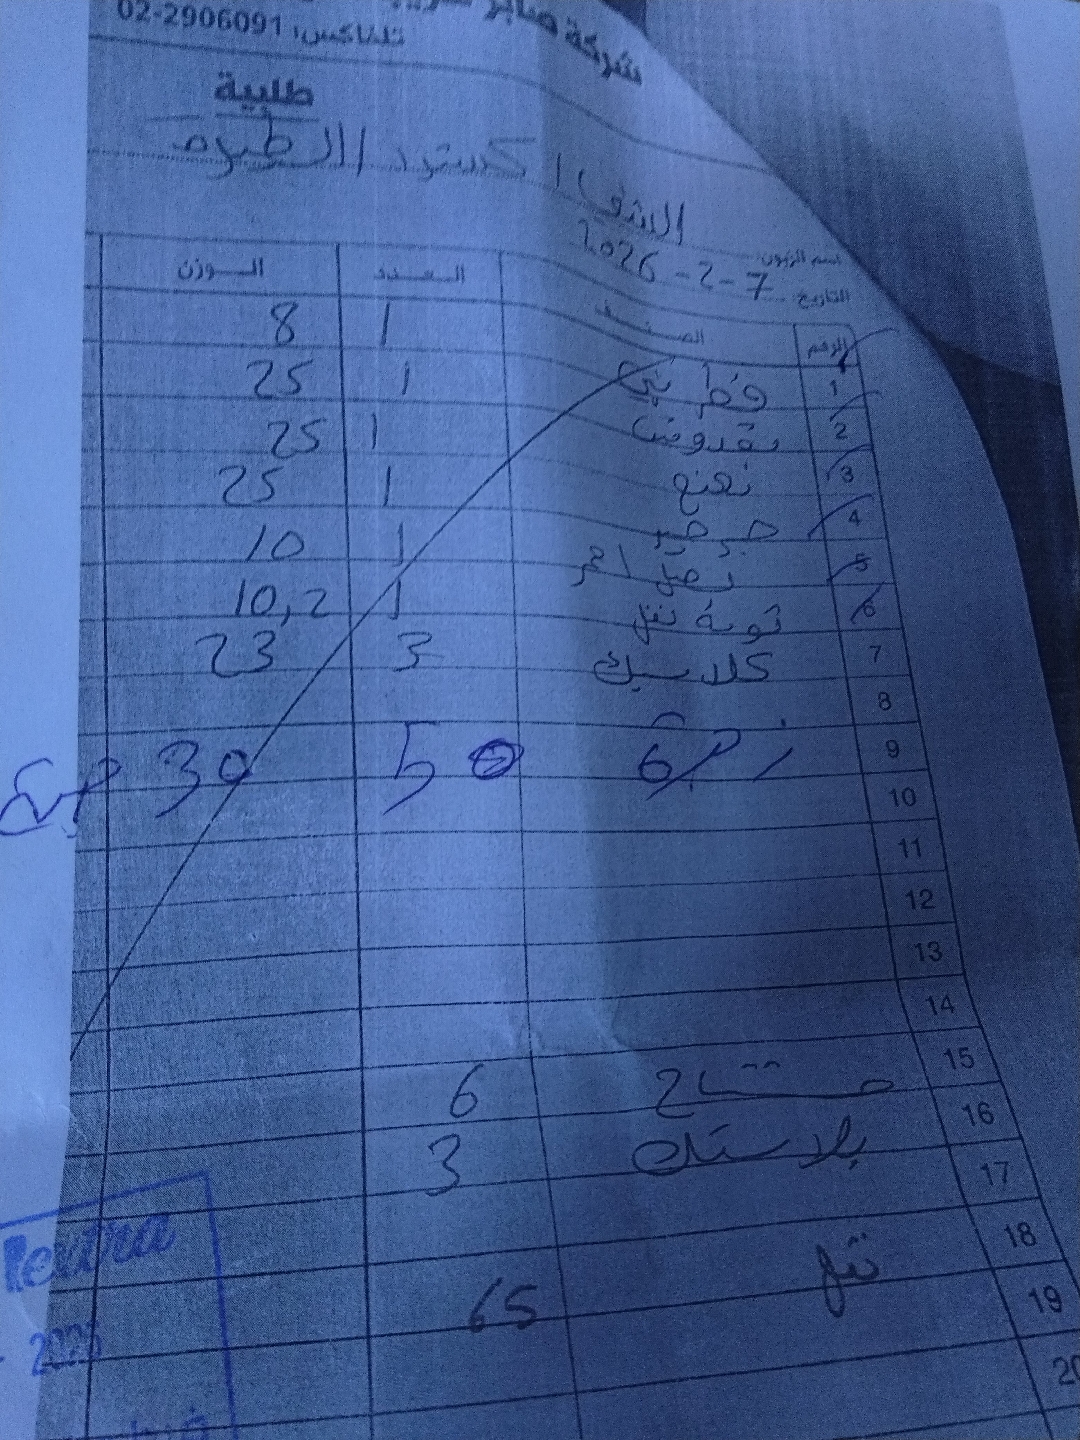 شركة صابر
تلفاكس: 02-2906091
طلبية
اسم الزبون: الشفا / اكسترا / الطيرة
التاريخ: 7-2-2026
الرقم الصنف العدد الوزن
1 1 8
2 بقدونس 1 25
3 نعنع 1 25
4 جرجير 1 25
5 بصل احمر 1 10
6 ثومة نقل 1 10,2
7 كلاسيك 3 23
8
9 5 30
10
11
12
13
14
15
16 مشتاح 6
17 بلاستك 3
18
19 نقل 65
20
extra
2026